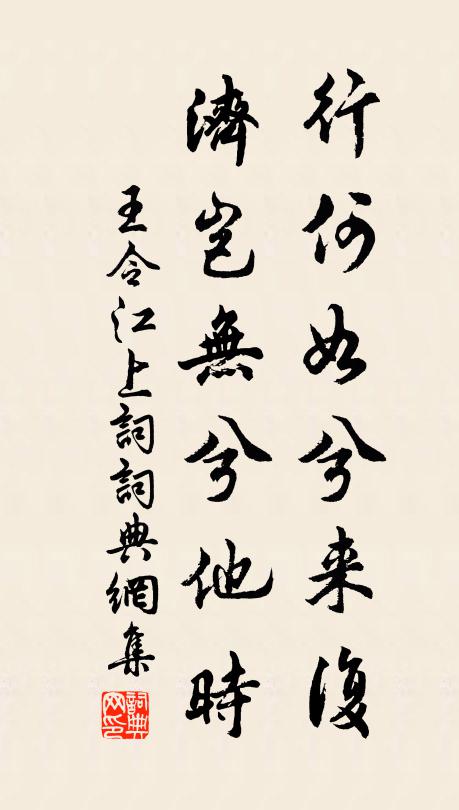 行何如兮来復
濟豈無兮他時
王令江上詞詞典網集
詞典网印